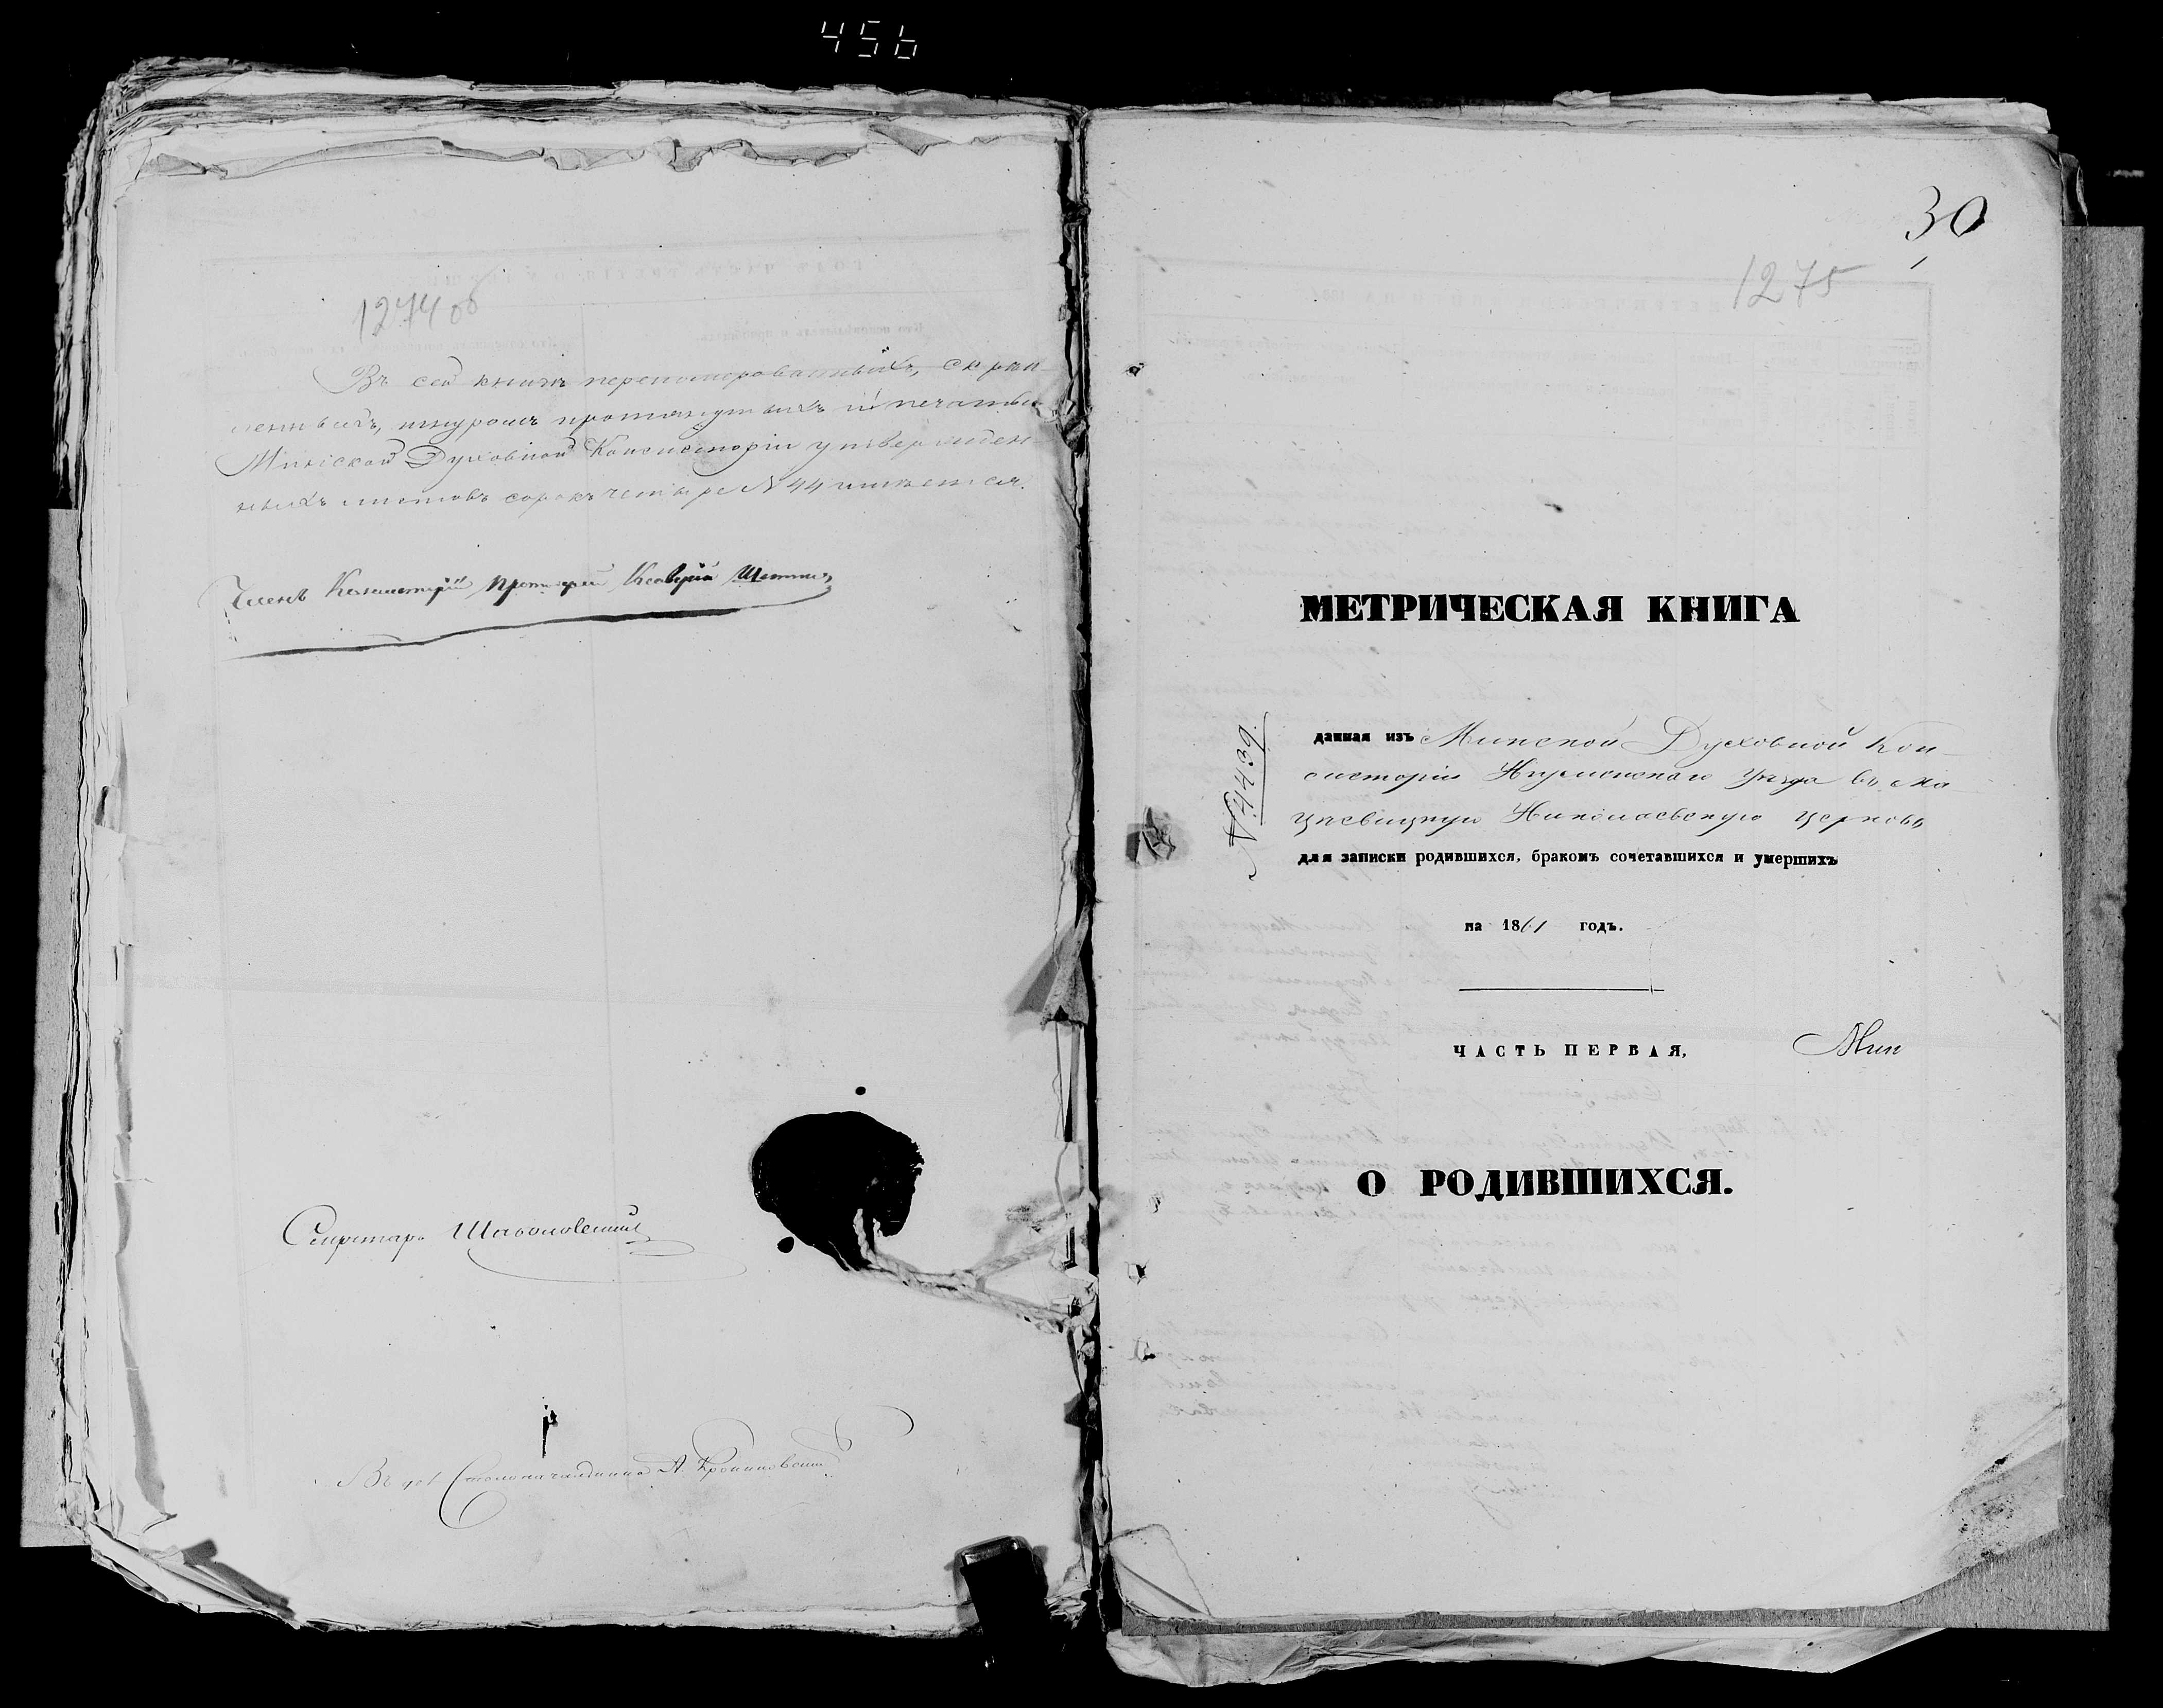 456
1274 об
Въ сей книгѣ перенумерованныхъ, скрѣп
ленныхъ, шнуромъ протянутыхъ и печатью
Минской Духовной Консисторіи утвержден-
ныхъ листовъ сорокъ четыре № 44 имѣется.
Членъ Консисторіи Протоіерей
Секретарь
Столоначальника А.
30
1275
МЕТРИЧЕСКАЯ КНИГА
№ 4439.
данная изъ Минской Духовной Кон-
систоріи Игуменскаго Уѣзда въ Ма
цѣевицкую Николаевскую церковь
для записки родившихся, бракомъ сочетавшихся и умершихъ
на 1861 годъ.
ЧАСТЬ ПЕРВАЯ,
Мин
О РОДИВШИХСЯ.